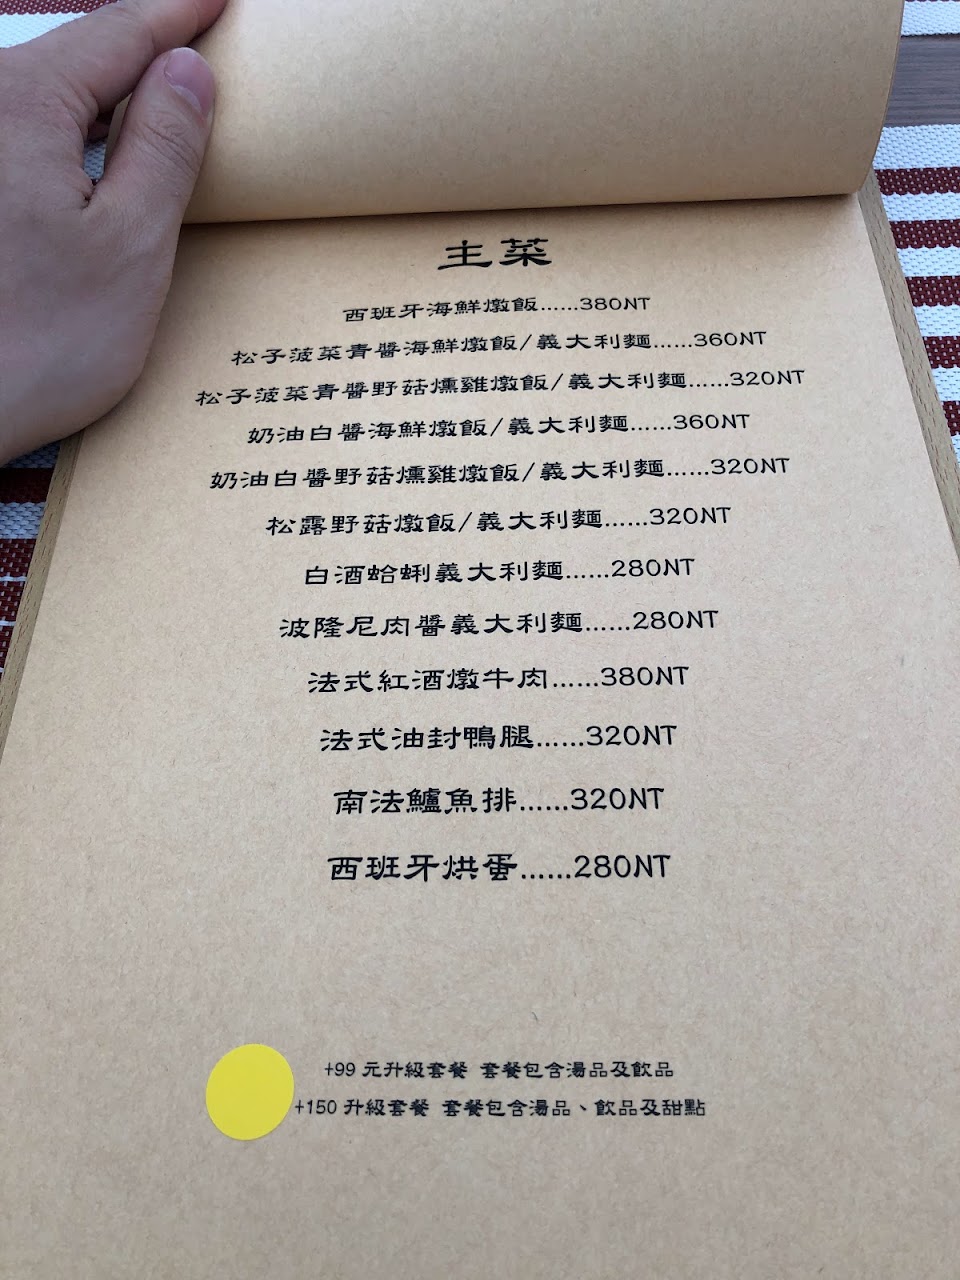 主菜
西班牙海鮮燉飯......380NT
松子菠菜青醬海鮮燉飯/義大利麵......360NT
松子菠菜青醬野菇燻雞燉飯/義大利麵......320NT
奶油白醬海鮮燉飯/義大利麵......360NT
奶油白醬野菇燻雞燉飯/義大利麵......320NT
松露野菇燉飯/義大利麵......320NT
白酒蛤蜊義大利麵......280NT
波隆尼肉醬義大利麵......280NT
法式紅酒燉牛肉......380NT
法式油封鴨腿......320NT
南法鱸魚排......320NT
西班牙烘蛋......280NT
+99 元升級套餐 套餐包含湯品及飲品
+150 升級套餐 套餐包含湯品、飲品及甜點